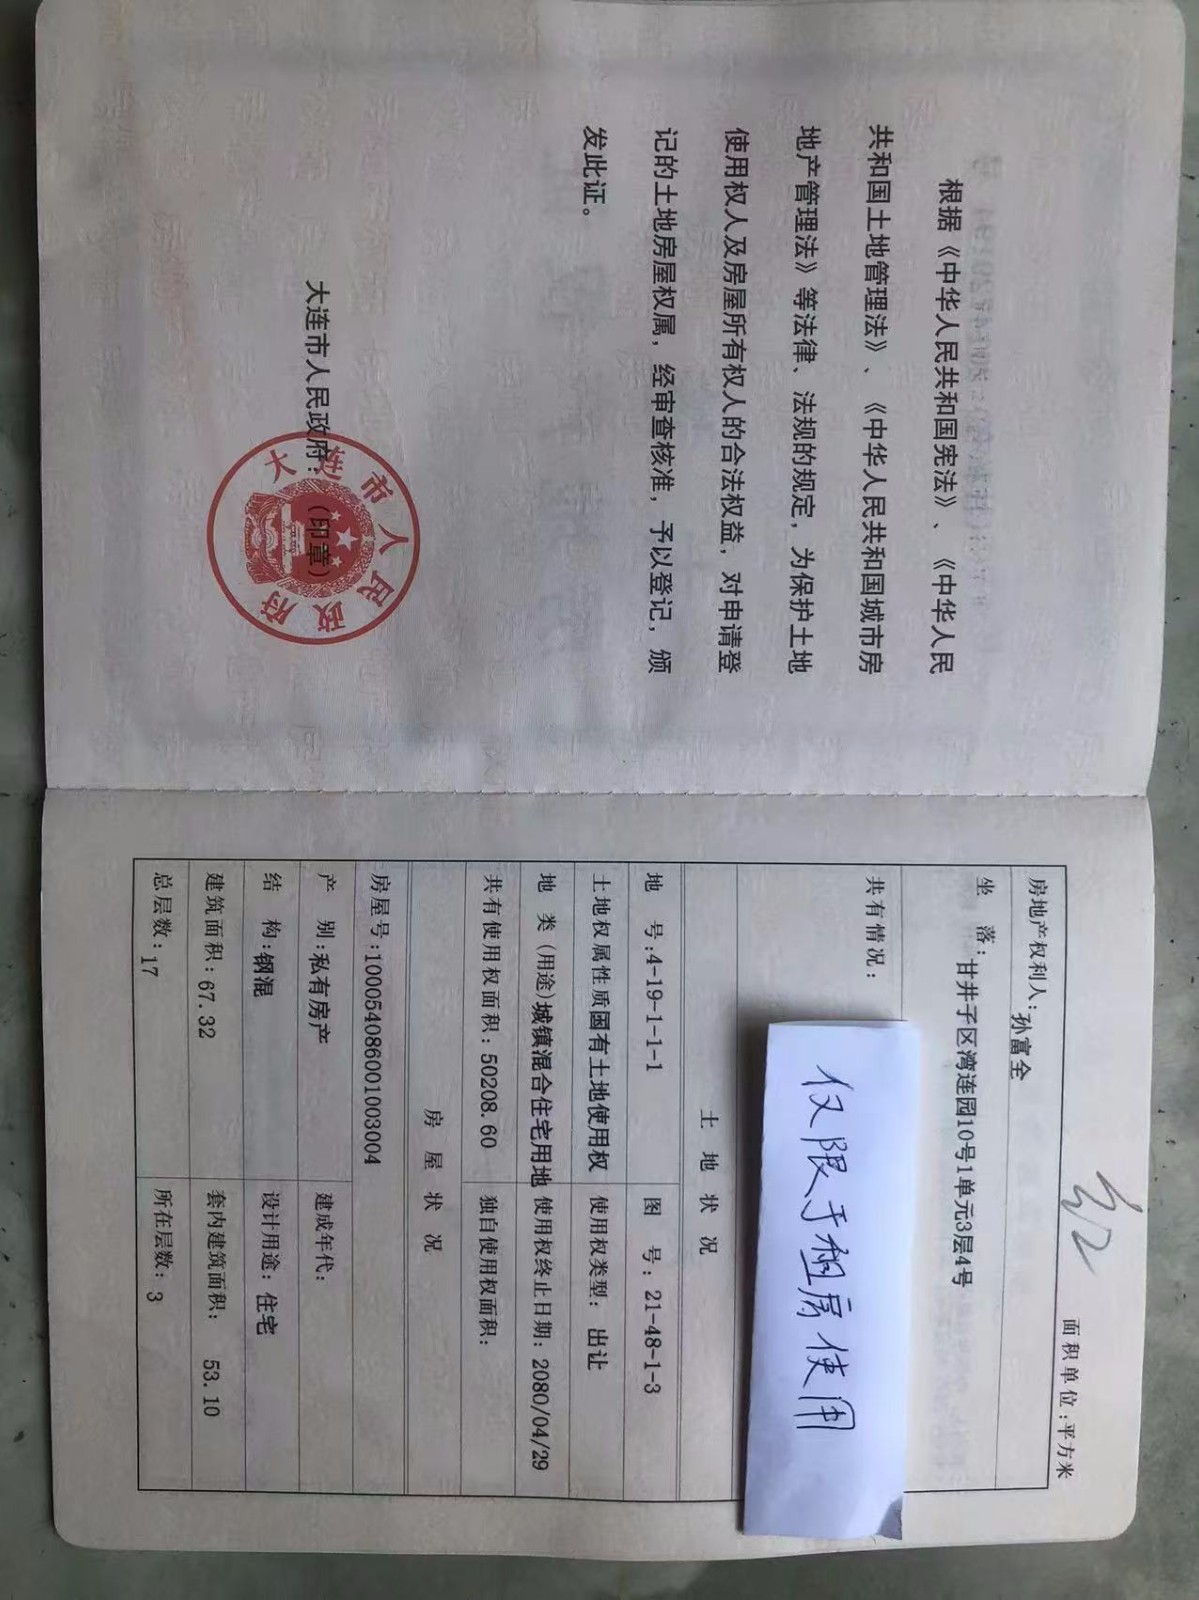 根据《中华人民共和国宪法》、《中华人民
共和国土地管理法》、《中华人民共和国城市房
地产管理法》等法律、法规的规定，为保护土地
使用权人及房屋所有权人的合法权益，对申请登
记的土地房屋权属，经审查核准，予以登记，颁
发此证。
大连市人民政府：（印章）
大连市人民政府
面积单位:平方米
房地产权利人:孙富全
坐 落:甘井子区湾连园10号1单元3层4号
共有情况:
仅限于租房使用
土 地 状 况
地 号:4-19-1-1-1 图 号:21-48-1-3
土地权属性质国有土地使用权 使用权类型: 出让
地 类(用途)城镇混合住宅用地 使用权终止日期: 2080/04/29
共有使用权面积: 50208.60 独自使用权面积:
房 屋 状 况
房屋号:100054086001003004
产 别:私有房产 建成年代:
结 构:钢混 设计用途: 住宅
建筑面积:67.32 套内建筑面积: 53.10
总层数:17 所在层数: 3